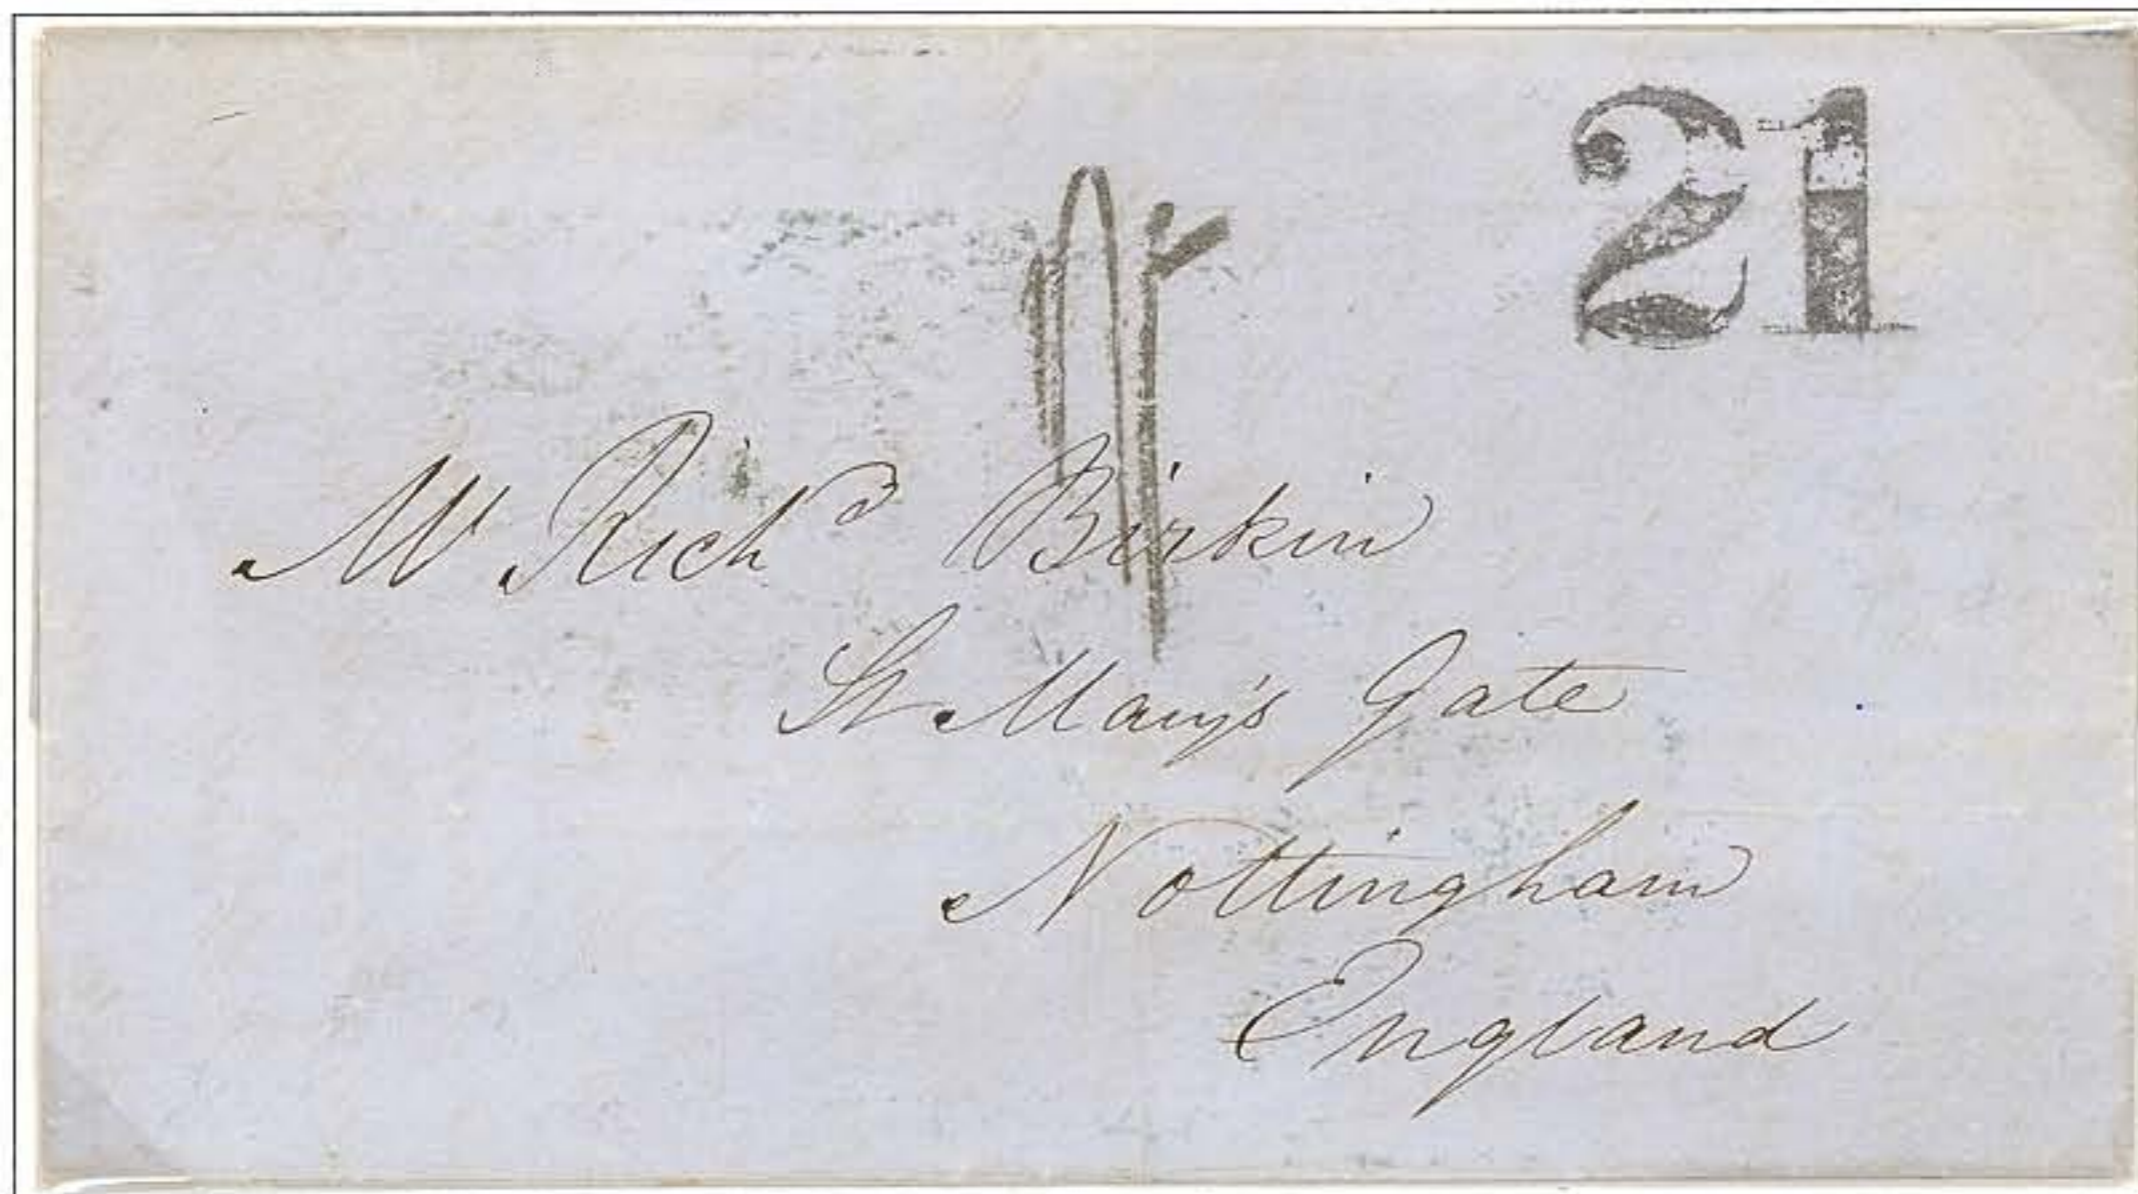 21
Mr Richd Birkin
St Mary's Gate
Nottingham
England